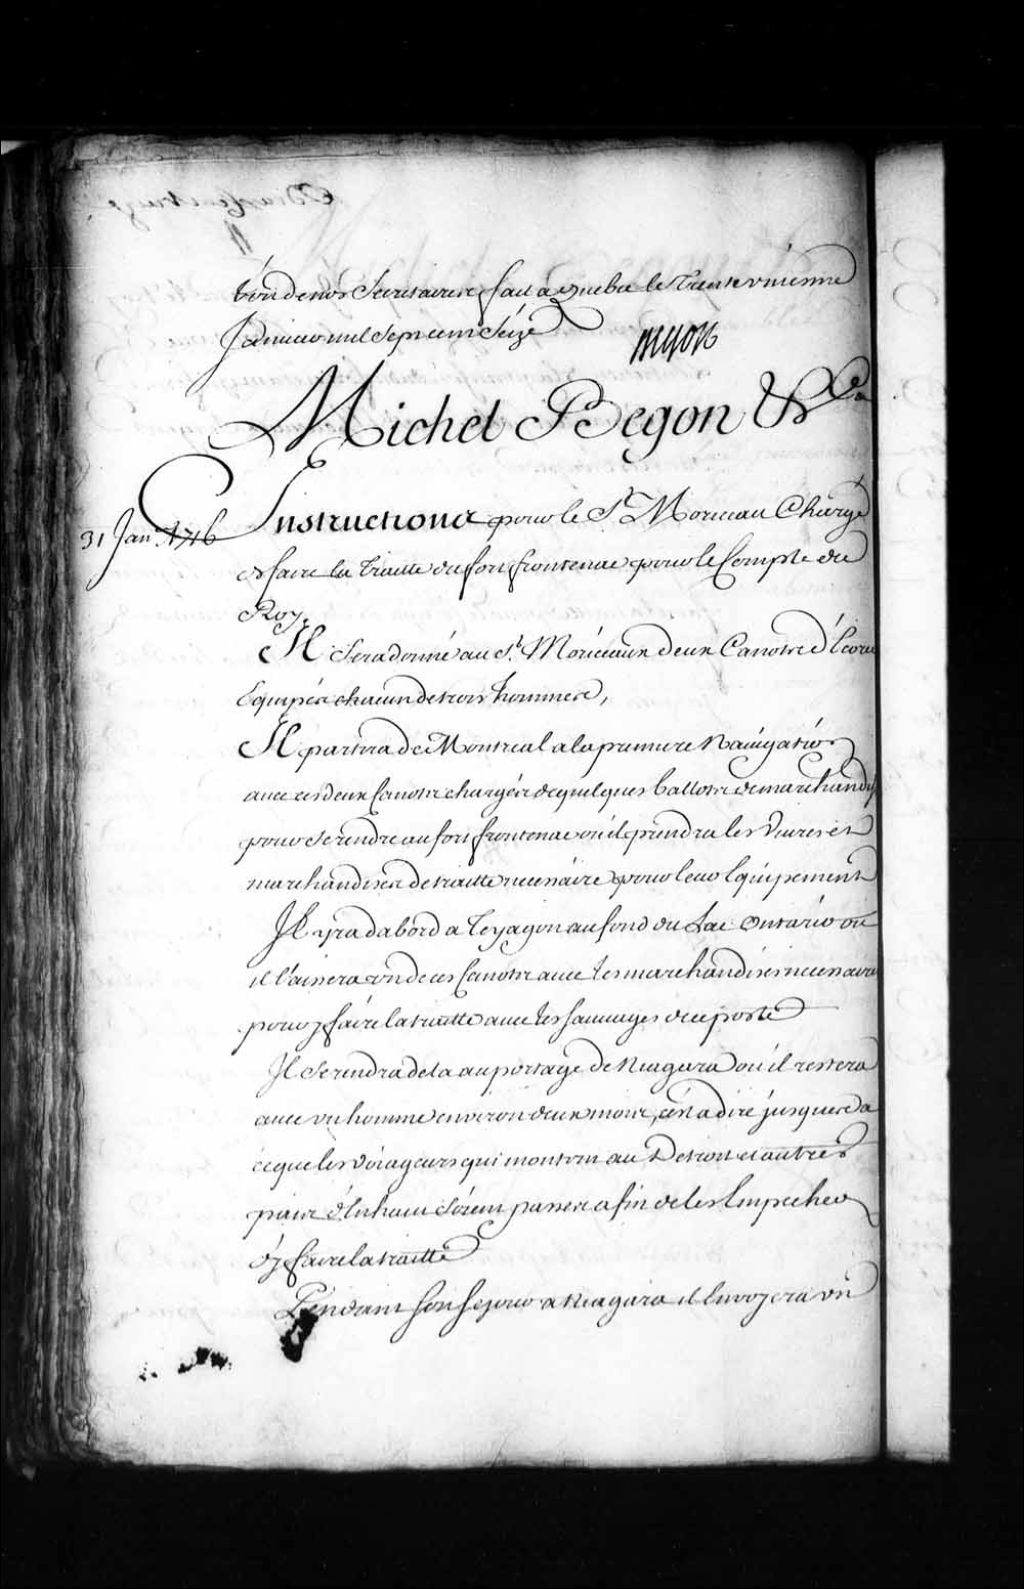 L'un de nos Secretaires fait a Quebec le Trente unieme
Janvier mil Sept cent Seize
Begon
Michel Begon &ca
31 Janr. 1716
Instructions pour le Sr. Moriceau Chargé
de faire la Traitte du fort frontenac pour le Compte du
Roy.
Il Sera donné au Sr. Moriceau deux Canots d'Ecorce
Equipés chacun de trois hommes,
Il partira de Montreal a la premiere Navigation
avec ces deux Canots chargés de quelques ballots de marchandises
pour se rendre au fort frontenac ou il prendra les Vivres et
marchandises de traitte necessaire pour leur Equipement
Il yra d'abord a Teyagon au fond du Lac Ontario ou
il laissera un de ces Canots avec les marchandises necessaires
pour y faire la traitte avec les Sauvages de ce poste
Il Se rendra de la au portage de Niagara ou il restera
avec un homme environ deux mois, c'est a dire jusques a
ce que les Voiageurs qui montent au Detroit et autres
païs d'Enhaut Soient passés afin de les Empecher
d'y faire la traitte
Pendant Son Sejour a Niagara il Envoyera un